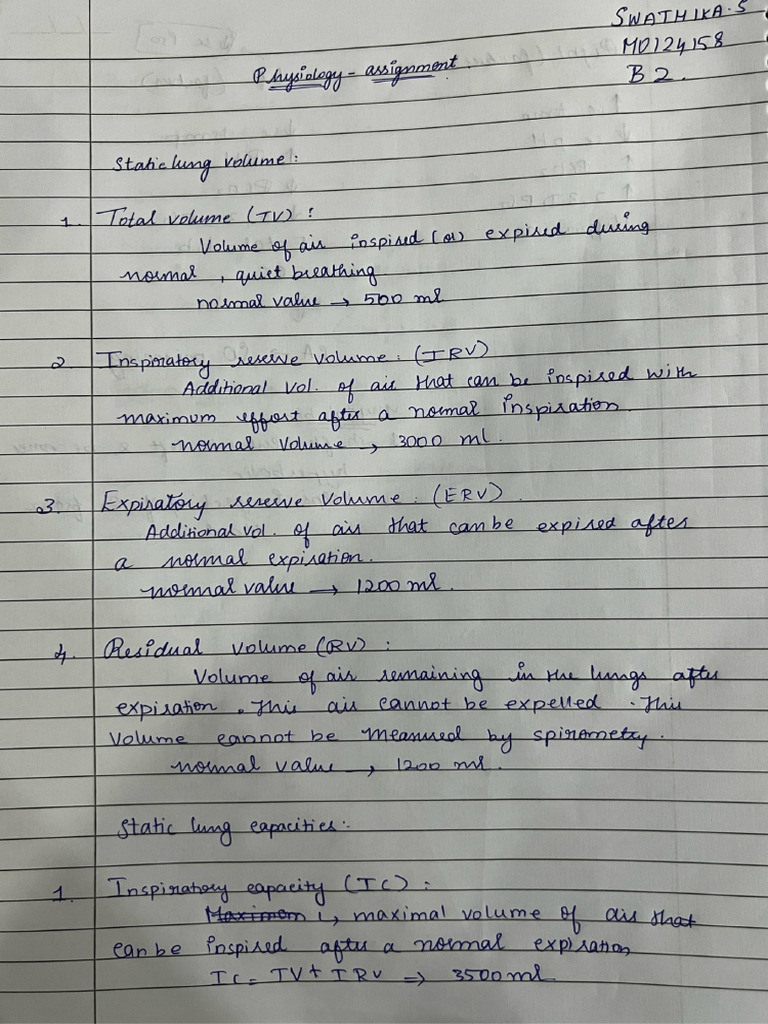 SWATHIKA.S
MD124158
B2.
Physiology - assignment.
Static lung volume:
1. Total volume (TV):
Volume of air inspired (or) expired during
normal, quiet breathing
normal value → 500 ml
2. Inspiratory reserve volume: (IRV)
Additional vol. of air that can be inspired with
maximum effort after a normal inspiration
normal volume → 3000 ml.
3. Expiratory reserve volume: (ERV)
Additional vol. of air that can be expired after
a normal expiration.
normal value → 1200 ml.
4. Residual volume (RV):
Volume of air remaining in the lungs after
expiration. This air cannot be expelled. This
volume cannot be measured by spirometry.
normal value → 1200 ml.
Static lung capacities:
1. Inspiratory capacity (IC):
maximal volume of air that
can be inspired after a normal expiration
IC = TV + IRV ⇒ 3500 ml